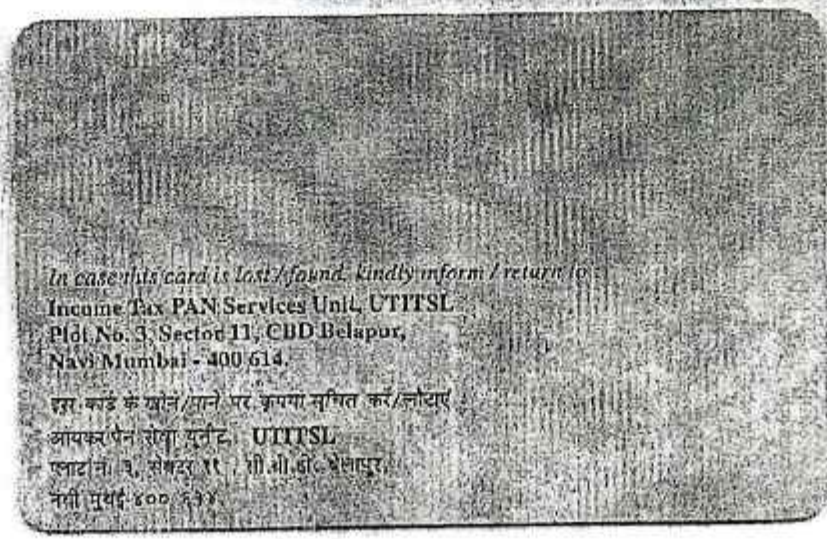 In case this card is lost / found, kindly inform / return to :
Income Tax PAN Services Unit, UTITSL
Plot No. 3, Sector 11, CBD Belapur,
Navi Mumbai - 400 614.
इस कार्ड के खोने/पाने पर कृपया सूचित करें/लौटाएं
आयकर पैन सेवा यूनीट, UTITSL
प्लाट नं. ३, सेक्टर ११, सी.बी.डी. बेलापुर,
नवी मुंबई-४०० ६१४.